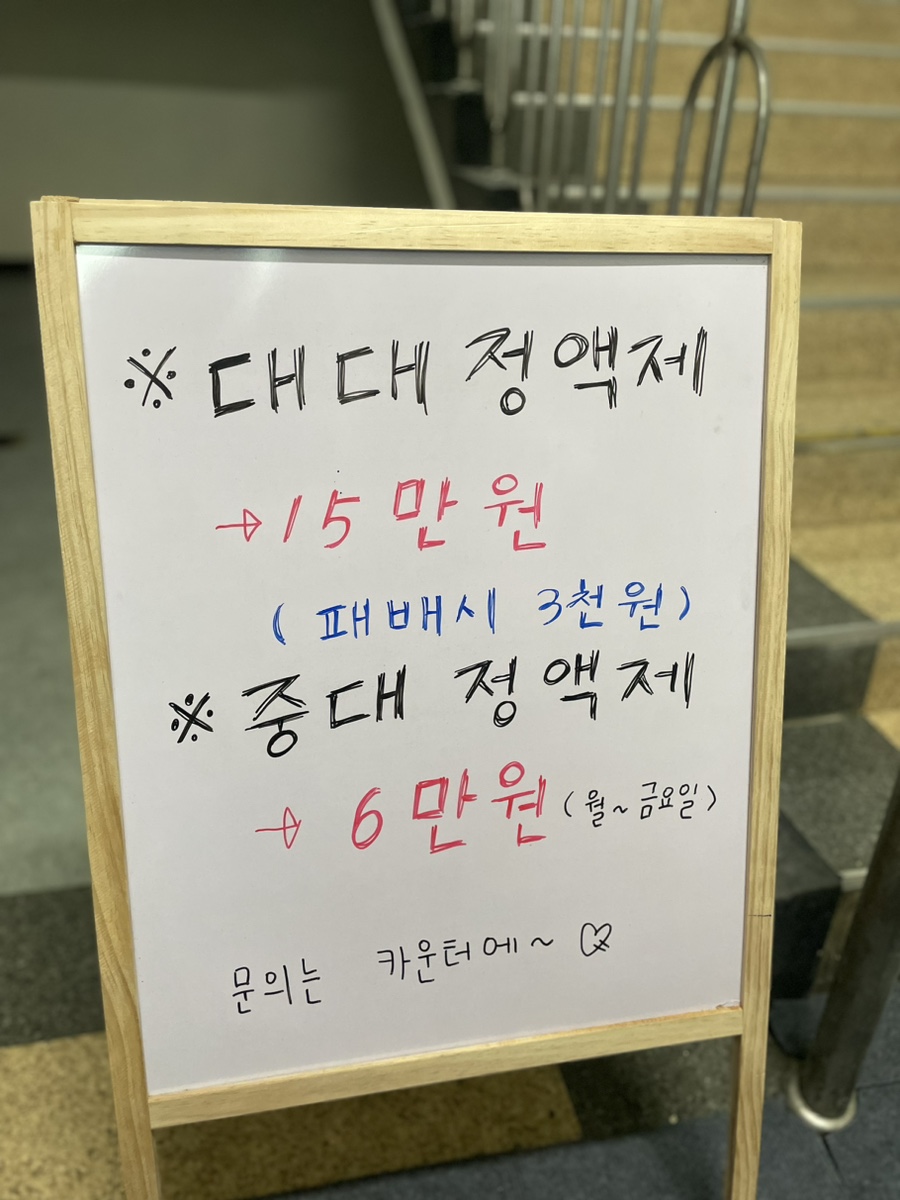 ※ 대대 정액제
→ 15만원
(패배시 3천원)
※ 중대 정액제
→ 6만원 (월~금요일)
문의는 카운터에~ ♡